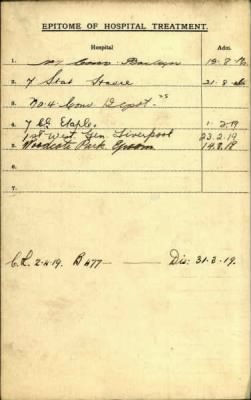 EPITOME OF HOSPITAL TREATMENT.
Hospital Adm.
1. Conv 18-8-16
2. 7 Stat 21-8-16
3. No. 4 Conv Depot
4. 7 CG Etaples. 1-2-19
1st West. Gen. Liverpool 23.2.19
5. Woodcote Park Epsom 14.3.19
6.
7.
C.L. 2.4.19. B 477 Dis: 31-3-19.